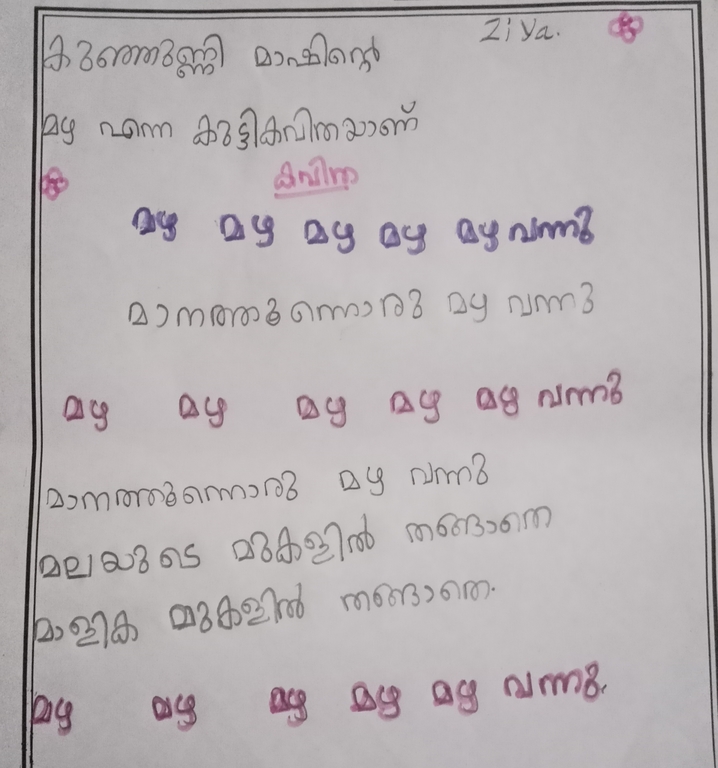 Ziya.
കുഞ്ഞുണ്ണി മാഷിന്റെ
മഴ എന്ന കുട്ടികവിതയാണ്
കവിത
മഴ മഴ മഴ മഴ മഴ വന്നു
മാനത്തുന്നൊരു മഴ വന്നു
മഴ മഴ മഴ മഴ മഴ വന്നു
മാനത്തുന്നൊരു മഴ വന്നു
മലയുടെ മുകളിൽ തങ്ങാതെ
മാളിക മുകളിൽ തങ്ങാതെ.
മഴ മഴ മഴ മഴ മഴ വന്നു.